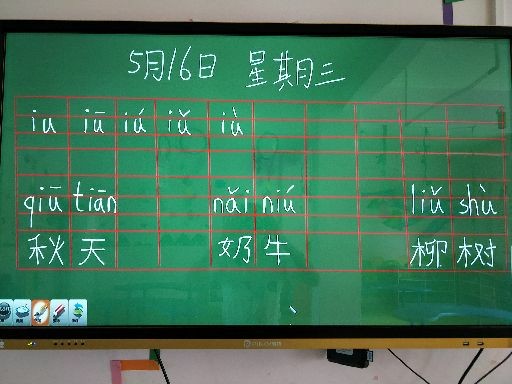 5月16日 星期三
iu iū iú iǔ iù
qiū tiān nǎi niú liǔ shù
秋天 奶牛 柳树